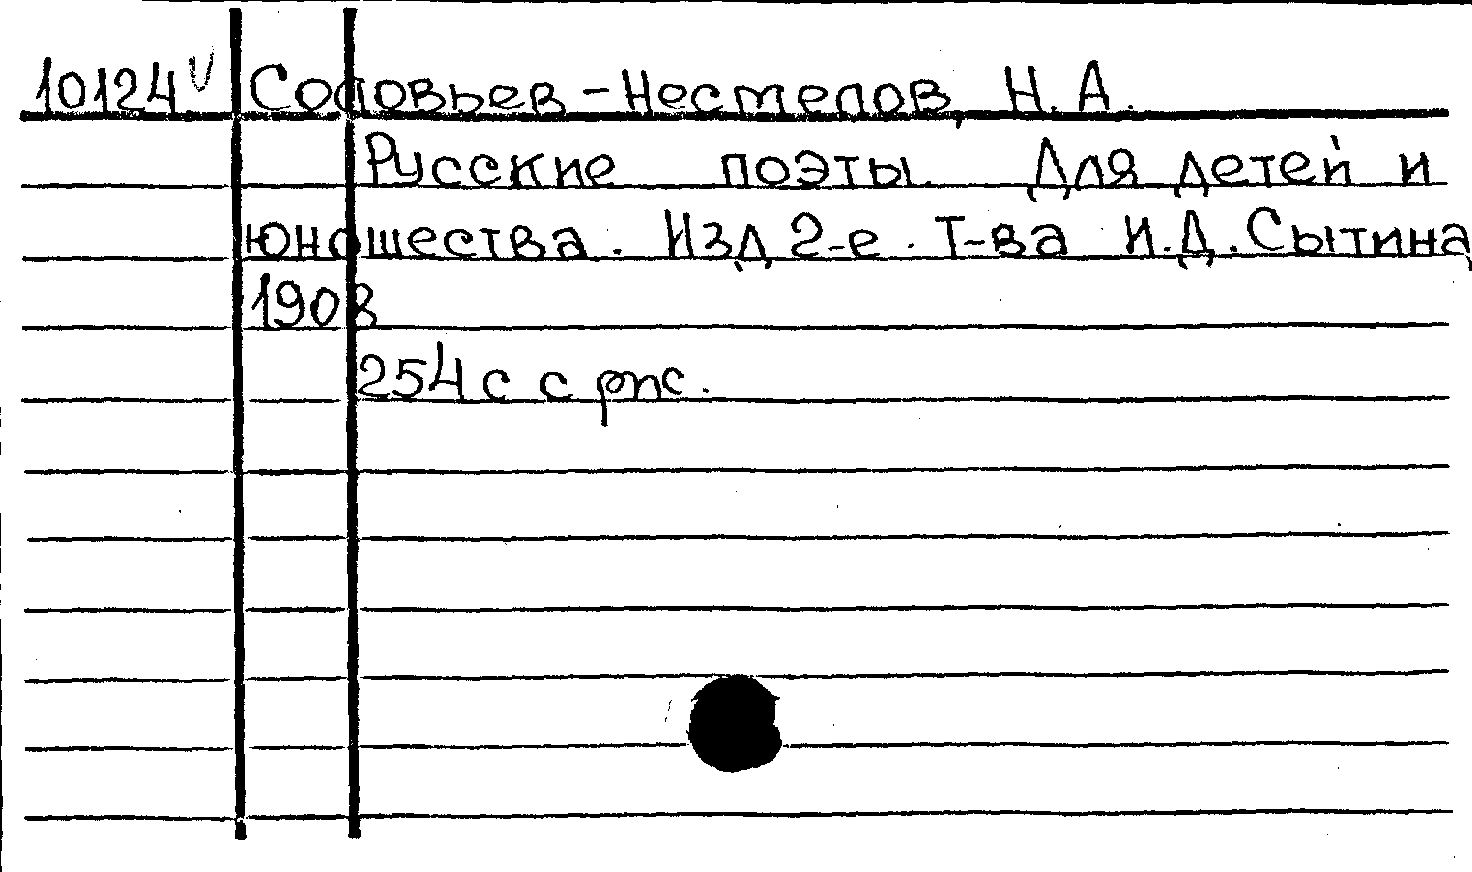 10124 Соловьев-Нестелов, Н. А.
Русские поэты. Для детей и
юношества. Изд 2-е. Т-ва И.Д. Сытина,
1908
254 с с рис.